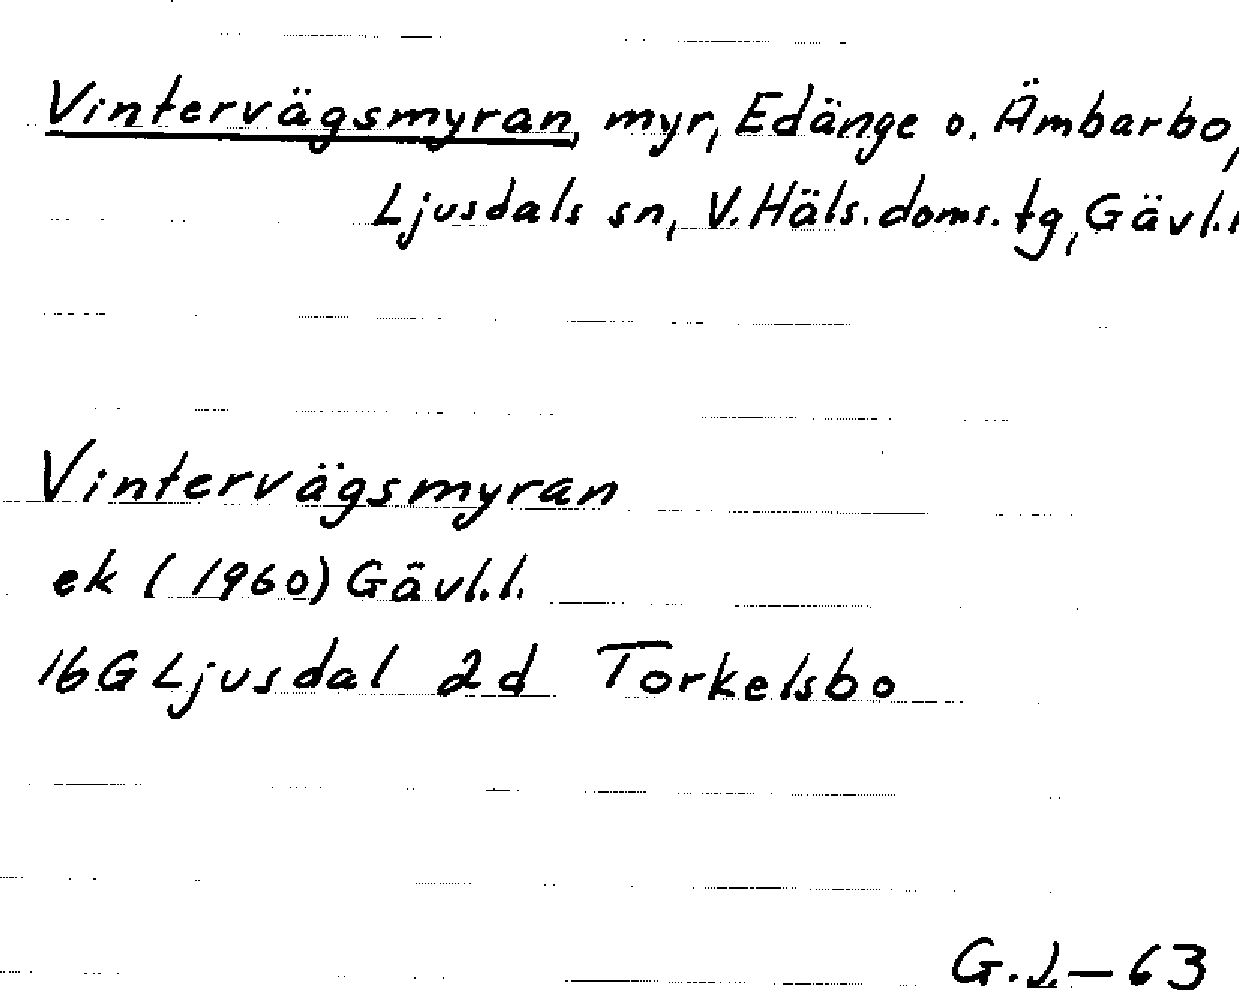 Vintervägsmyran, myr, Edänge o. Ämbarbo,
Ljusdals sn, V. Häls. doms. tg, Gävl.l
Vintervägsmyran
ek (1960) Gävl.l.
16G Ljusdal 2d Torkelsbo
G.J.–63